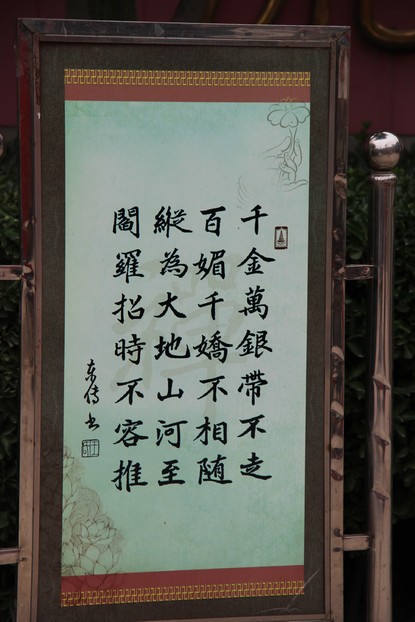 千金萬銀帶不走
百媚千嬌不相随
縱為大地山河至
閻羅招時不容推
东传书